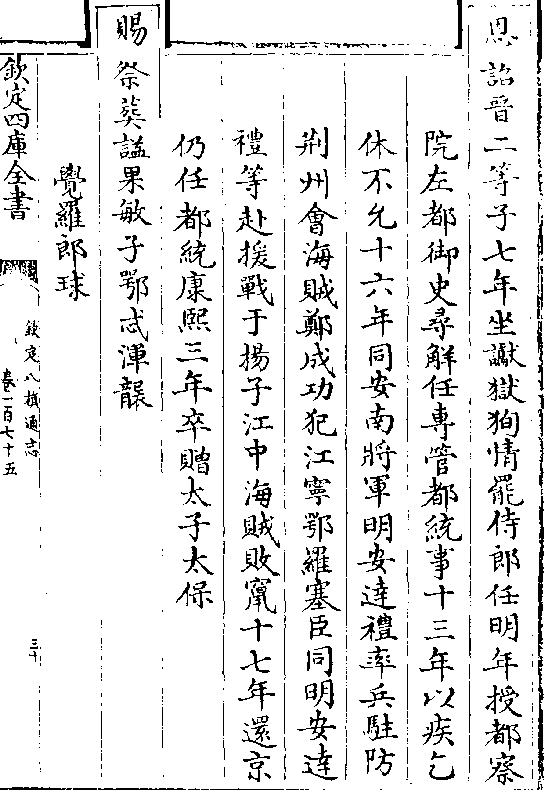 恩詔晉二等子七年坐讞獄狥情罷侍郎任明年授都察
院左都御史尋解任專管都統事十三年以疾乞
休不允十六年同安南將軍明安達禮率兵駐防
荆州會海賊鄭成功犯江寧鄂羅塞臣同明安達
禮等赴援戰于揚子江中海賊敗竄十七年還京
仍任都統康熙三年卒贈太子太保
賜祭葬諡果敏子鄂忒渾襲
覺羅郎球
欽定四庫全書
欽定八旗通志
卷一百七十五
三十